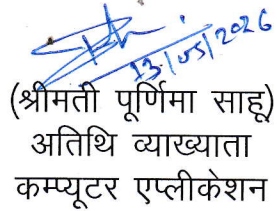 13/05/2026
(श्रीमती पूर्णिमा साहू)
अतिथि व्याख्याता
कम्प्यूटर एप्लीकेशन